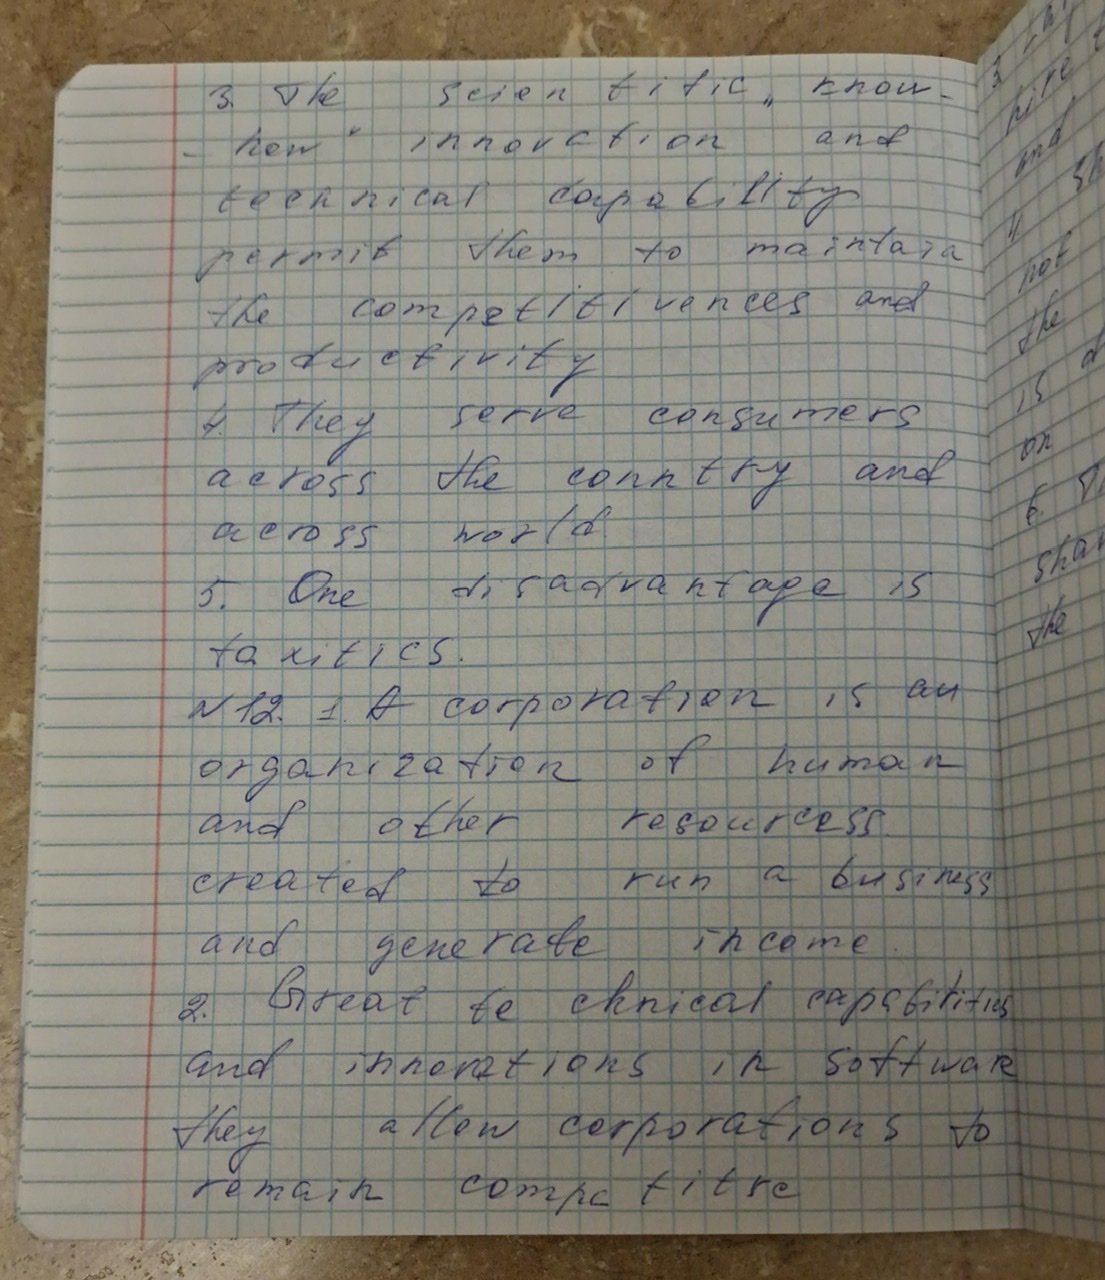 3. The scientific „know-
- how" innovation and
technical capability
permit them to maintain
the competitivences and
productivity
4. They serve consumers
across the conntry and
across world.
5. One disadvantage is
taxitics.
N12. 1. A corporation is an
organization of human
and other resourcess
created to run a business
and generate income.
2. Great technical capabitities
and innovations in software
they allow corporations to
remain compe titve
3
hire
and
4
not
the
is
on
6.
shar
the